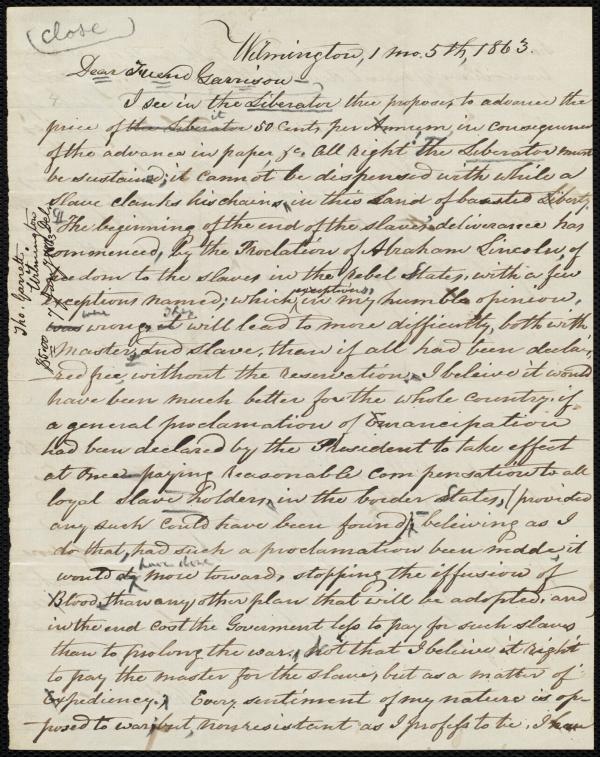 (close)
Wilmington, 1 mo. 5th, 1863.
Dear Friend Garrison—
I see in the Liberator thee proposes to advance the
price of the Liberator it 50 Cents per Annum, in consequence
of the advance in paper, &c. All right the Liberator must
be sustained, it cannot be dispensed with while a
slave clanks his chains, in this Land of boasted Liberty
The beginning of the end of the slaves deliverance has
commenced, by the Proclation of Abraham Lincoln, of
freedom to the slaves in the rebel States, with a few
exceptions named; which exceptions, in my humble opineon,
was were wrong, it they will lead to more difficulty, both with
Master, and slave, than if all had been declai,
red free, without the reservation, I beleive it would
have been much better for the whole country, if
a general proclamation of Emancipation
had been declared by the President to take effect
at Once paying reasonable compensation to all
loyal slave holders, in the border States, (provided
any such could have been found), beleiving as I
do that, had such a proclamation been made, it
would do have done more toward, stopping the effusion of
Blood, than any other plan that will be adopted, and
in the end cost the Goverment less to pay for such slaves
than to prolong the war. Not that I beleive it right
to pay the master for the slave, but as a matter of
Expediency, Every sentiment of my nature is op-
posed to war, but, nonresistant as I profess to be, I
Tho. Garrett
Wilmington
Del.
$5.00